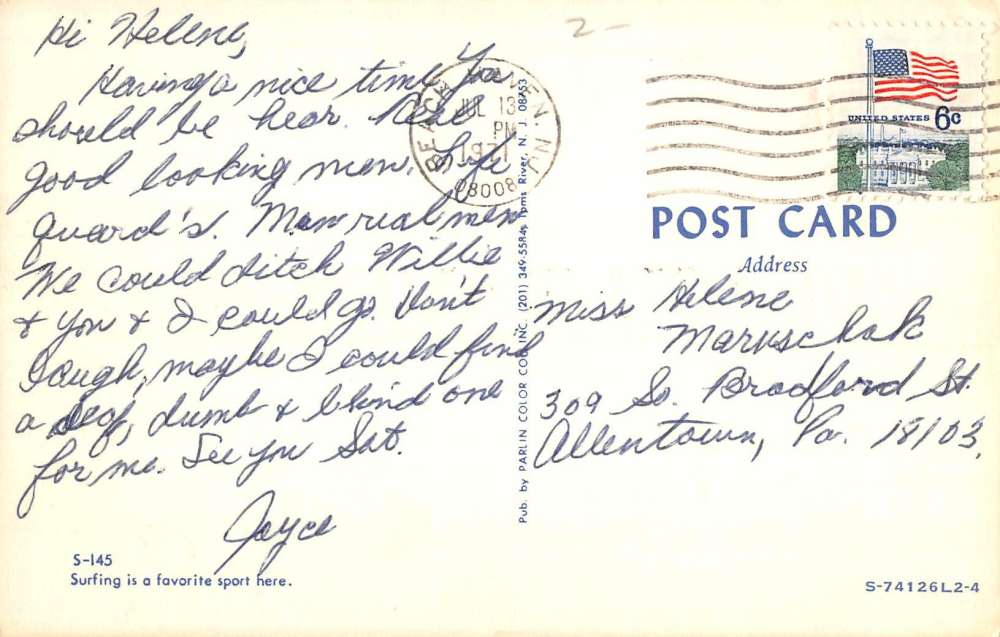 2-
Hi Helene,
Having a nice time. You
should be hear. Real
good looking men. Life
guard's. Mam real men
We could ditch Willie
& you & I could go. Don't
laugh, maybe I could find
a deaf, dumb & blind one
for me. See you Sat.
Joyce
S-145
Surfing is a favorite sport here.
Pub. by PARLIN COLOR CO., INC. (201) 349-5584, Toms River, N. J. 08753
BEACH HAVEN N.J.
JUL 13
PM
1971
08008
UNITED STATES 6c
POST CARD
Address
Miss Helene
Maruschak
309 So. Bradford St.
Allentown, Pa. 18103
S-74126L2-4